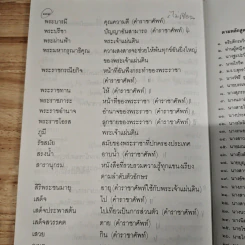 พระบารมี คุณความดี (คำราชาศัพท์)
พระปรีชา ปัญญาอันสามารถ (คำราชาศัพท์)
พระผ่านฟ้า พระเจ้าแผ่นดิน
พระมหากรุณาธิคุณ ความสงสารจะช่วยให้พ้นทุกข์อันยิ่งใหญ่
ของพระเจ้าแผ่นดิน
พระราชกรณียกิจ หน้าที่อันพึงกระทำของพระราชา
(คำราชาศัพท์)
พระราชทาน ให้ (คำราชาศัพท์)
พระราชภาระ หน้าที่ของพระราชา (คำราชาศัพท์)
พระราชอำนาจ อำนาจของพระราชา (คำราชาศัพท์)
พระราชโอรส ลูกชายของพระราชา (คำราชาศัพท์)
ภูมี พระเจ้าแผ่นดิน
รัชสมัย สมัยของพระราชาที่ปกครองประเทศ
สรงน้ำ อาบน้ำ (คำราชาศัพท์)
สารานุกรม หนังสือที่รวบรวมความรู้ทุกแขนงเรียง
ตามลำดับตัวอักษร
สิริพระชนมายุ อายุ (คำราชาศัพท์ใช้กับพระเจ้าแผ่นดิน)
เสด็จ ไป (คำราชาศัพท์)
เสด็จประพาสต้น ไปเที่ยวเป็นการส่วนตัว (คำราชาศัพท์)
เสด็จสวรรคต ตาย (คำราชาศัพท์)
เสวย กิน (คำราชาศัพท์)